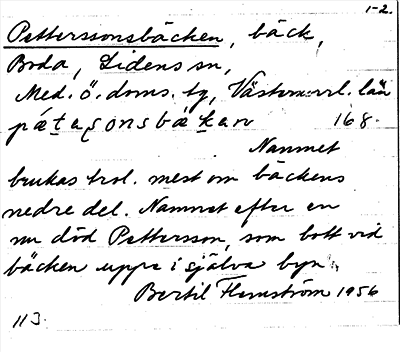 1-2.
Petterssonsbäcken, bäck,
Boda, Lidens sn,
Med. ö. doms. tg, Västernorrl. län
pæ̣tasonsbækan 168.
Namnet
brukas trol. mest om bäckens
nedre del. Namnet efter en
nu död Pettersson, som bott vid
bäcken uppe i själva byn.
Bertil Flemström 1956
113.